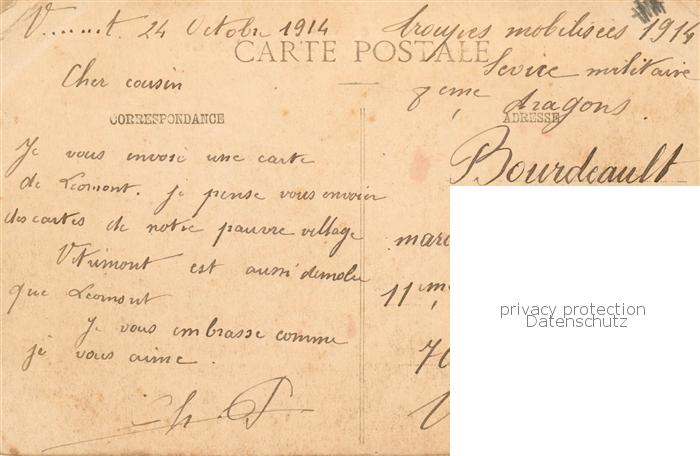 V......t. 24 Octobre 1914
troupes mobilisées 1914
CARTE POSTALE
Sevice militaire
Cher cousin
8ème dragons
CORRESPONDANCE
ADRESSE
Je vous envoie une carte
de Leomont. je pense vous envoier
des cartes de notre pauvre village
Vitrimont est aussi demolie
que Leomont
Je vous embrasse comme
je vous aime.
Ch. P
Bourdeault
marc
11ème
70
V
privacy protection
Datenschutz